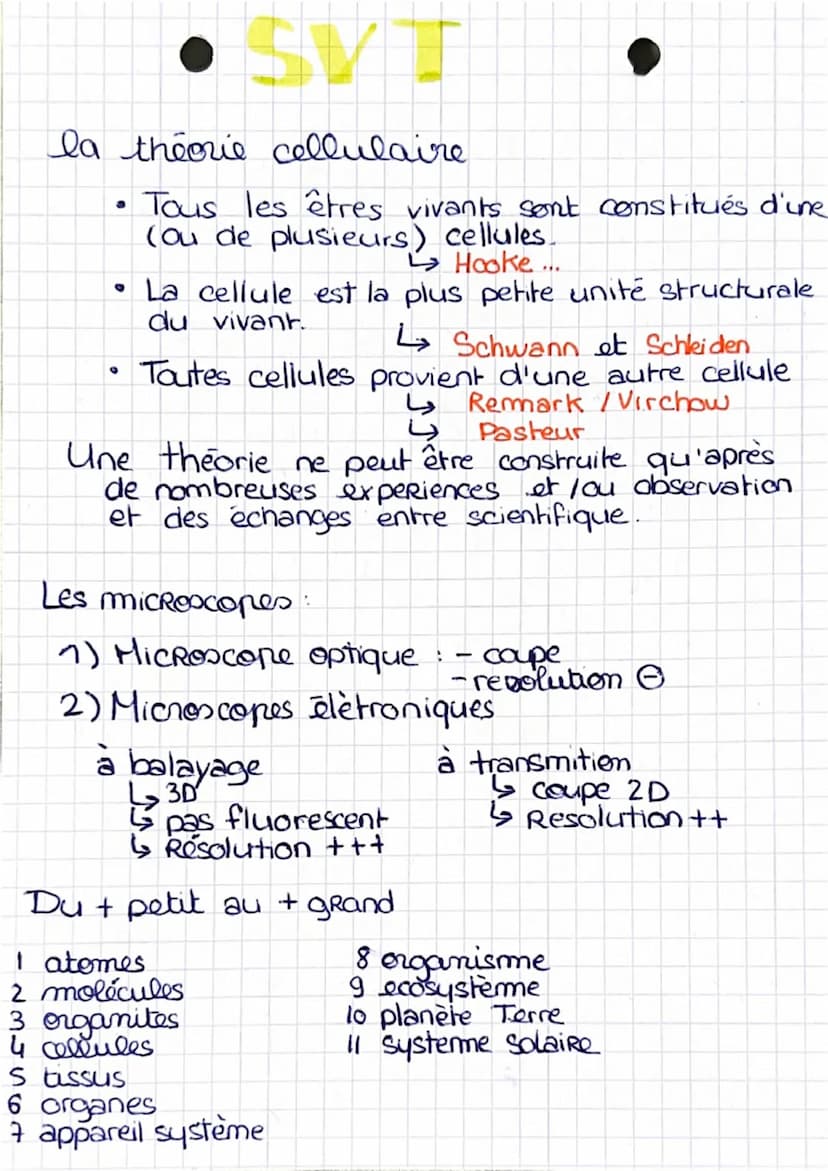 SVT
la théorie cellulaire
• Tous les êtres vivants sont constitués d'une
(ou de plusieurs) cellules.
↳ Hooke ...
• La cellule est la plus petite unité structurale
du vivant.
↳ Schwann et Schleiden
• Toutes cellules provient d'une autre cellule
↳ Remmark / Virchow
↳ Pasteur
Une théorie ne peut être construite qu'après
de nombreuses experiences et /ou observation
et des échanges entre scientifique.
Les microscopes :
1) Microscope optique : - coupe
- resolution ⊖
2) Microscopes élètroniques
à balayage
↳ 3D
↳ pas fluorescent
↳ Résolution +++
à transmition
↳ coupe 2D
↳ Resolution ++
Du + petit au + grand
1 atomes
2 molécules
3 organites
4 cellules
5 tissus
6 organes
7 appareil système
8 organisme
9 ecosystème
10 planète Terre
11 systeme solaire